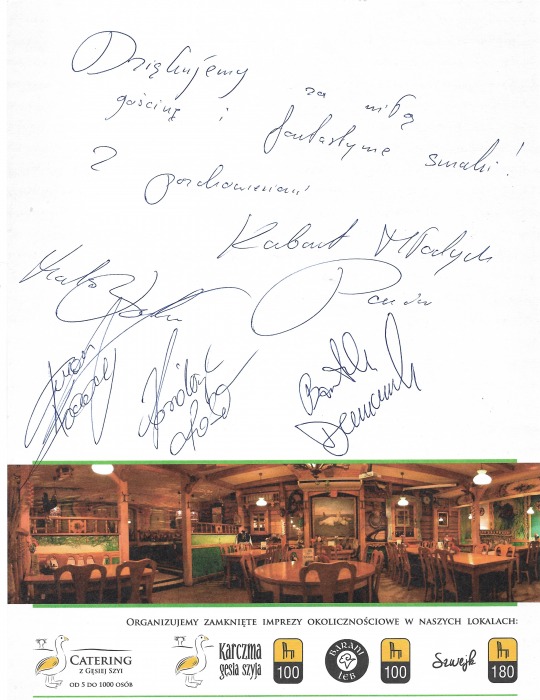 Dziękujemy za miłą
gościnę i fantastyczne smaki!
Z pozdrowieniami
Kabaret Młodych
Panów
Bartosz
Demczuk
ORGANIZUJEMY ZAMKNIĘTE IMPREZY OKOLICZNOŚCIOWE W NASZYCH LOKALACH:
CATERING
Z GĘSIEJ SZYI
OD 5 DO 1000 OSÓB
Karczma
gęsia szyja
100
BARANI
ŁEB
100
Szwejk
180